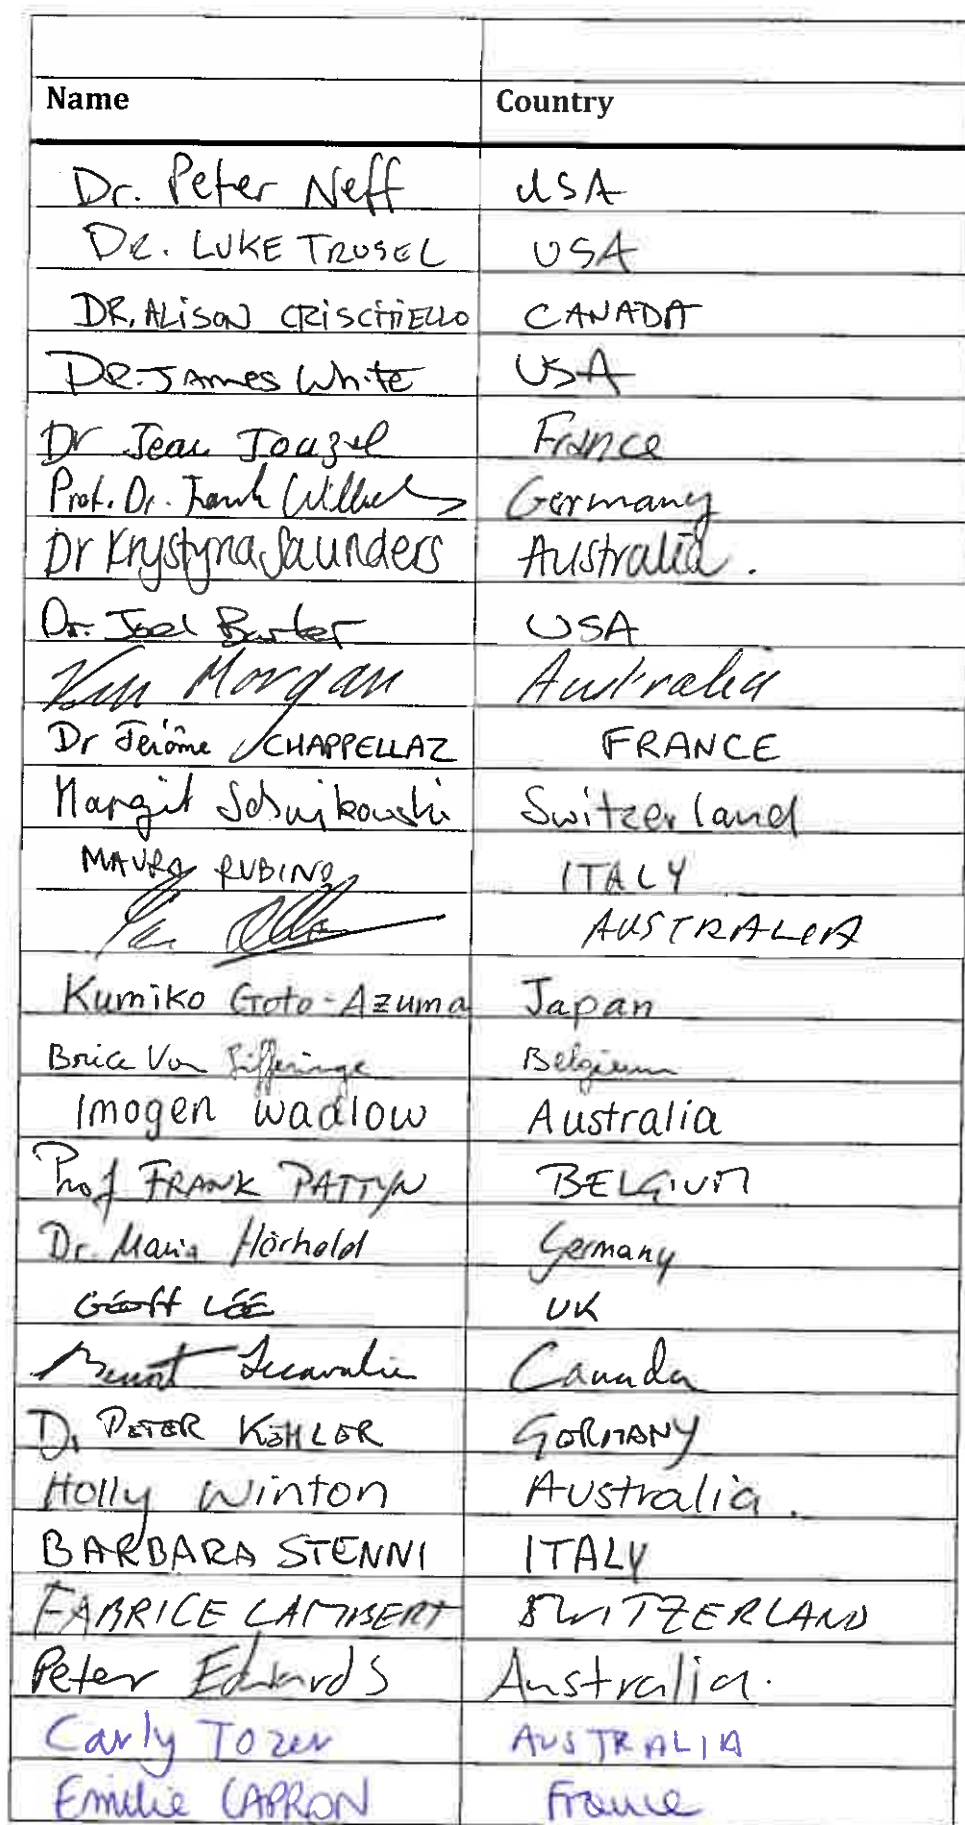 Name Country
Dr. Peter Neff USA
DR. LUKE TRUSEL USA
DR. ALISON CRISCITIELLO CANADA
DR. JAMES White USA
Dr Jean Jouzel France
Prof. Dr. Frank Germany
Dr Krystyna Saunders Australia.
Dr. Joel Barker USA
Morgan Australia
Dr Jérôme CHAPPELLAZ FRANCE
Margit Schwikowski Switzerland
MAURO RUBINO ITALY
AUSTRALIA
Kumiko Goto-Azuma Japan
Brice Van Liefferinge Belgium
Imogen Wadlow Australia
Prof FRANK PATTYN BELGIUM
Dr. Maria Hörhold Germany
GEOFF LEE UK
Benoit Lecavalier Canada
Dr PETER KÖHLER GERMANY
Holly Winton Australia.
BARBARA STENNI ITALY
FABRICE LAMBERT SWITZERLAND
Peter Edwards Australia.
Carly Tozer AUSTRALIA
Emilie CAPRON France